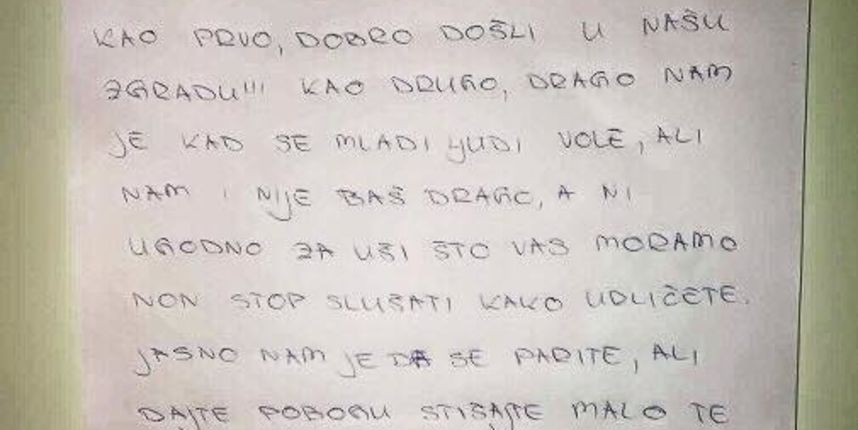 KAO PRVO, DOBRO DOŠLI U NAŠU
ZGRADU!!! KAO DRUGO, DRAGO NAM
JE KAD SE MLADI LJUDI VOLE, ALI
NAM I NIJE BAŠ DRAGO, A NI
UGODNO ZA UŠI ŠTO VAS MORAMO
NON STOP SLUŠATI KAKO UDLIČETE.
JASNO NAM JE DA SE PARITE, ALI
DAJTE POBOGU STIŠAJTE MALO TE